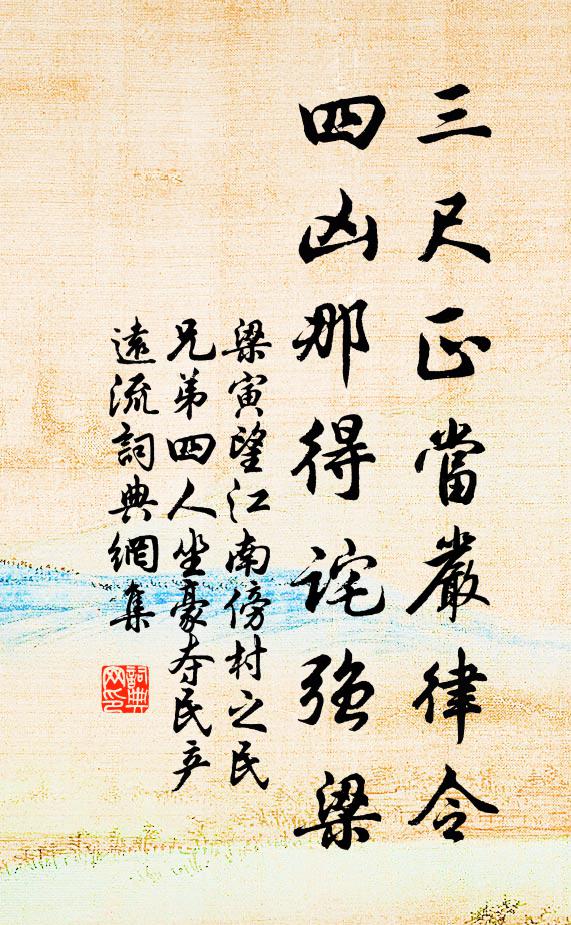 三尺正當嚴律令
四凶那得詫强梁
梁寅望江南傍村之民
兄弟四人坐豪夺民产
遠流詞典網集
詞典网印